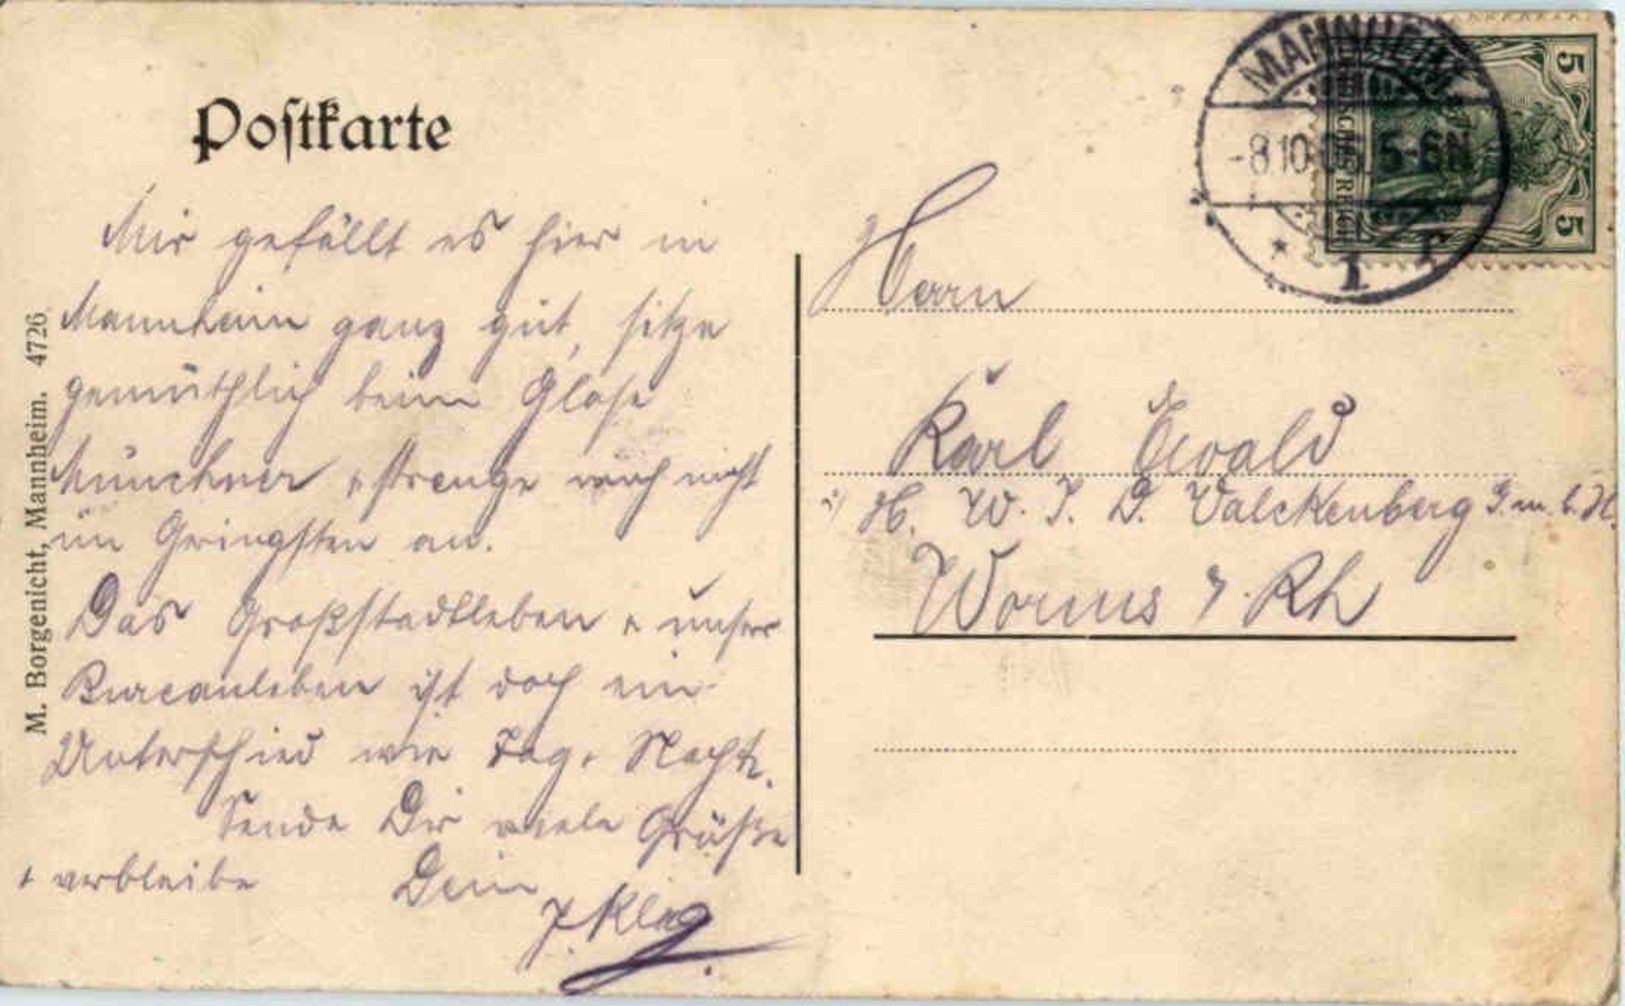 Postkarte
Mir gefällt es hier in
Mannheim ganz gut, sitze
gemüthlich beim Glase
Münchner & strenge mich nicht
im Gringsten an.
Das Großstadtleben & unser
Bureauleben ist doch ein
Unterschied wie Tag & Nacht.
Sende Dir viele Grüße
& verbleibe Dein
J. Klag
M. Borgenicht, Mannheim. 4726
MANNHEIM
-8.10. 5-6N
* 1 r
DEUTSCHES REICH
5
5
Herrn
Karl Ewald
i/ H. W. J. D. Valckenberg G.m.b.H.
Worms a. Rh